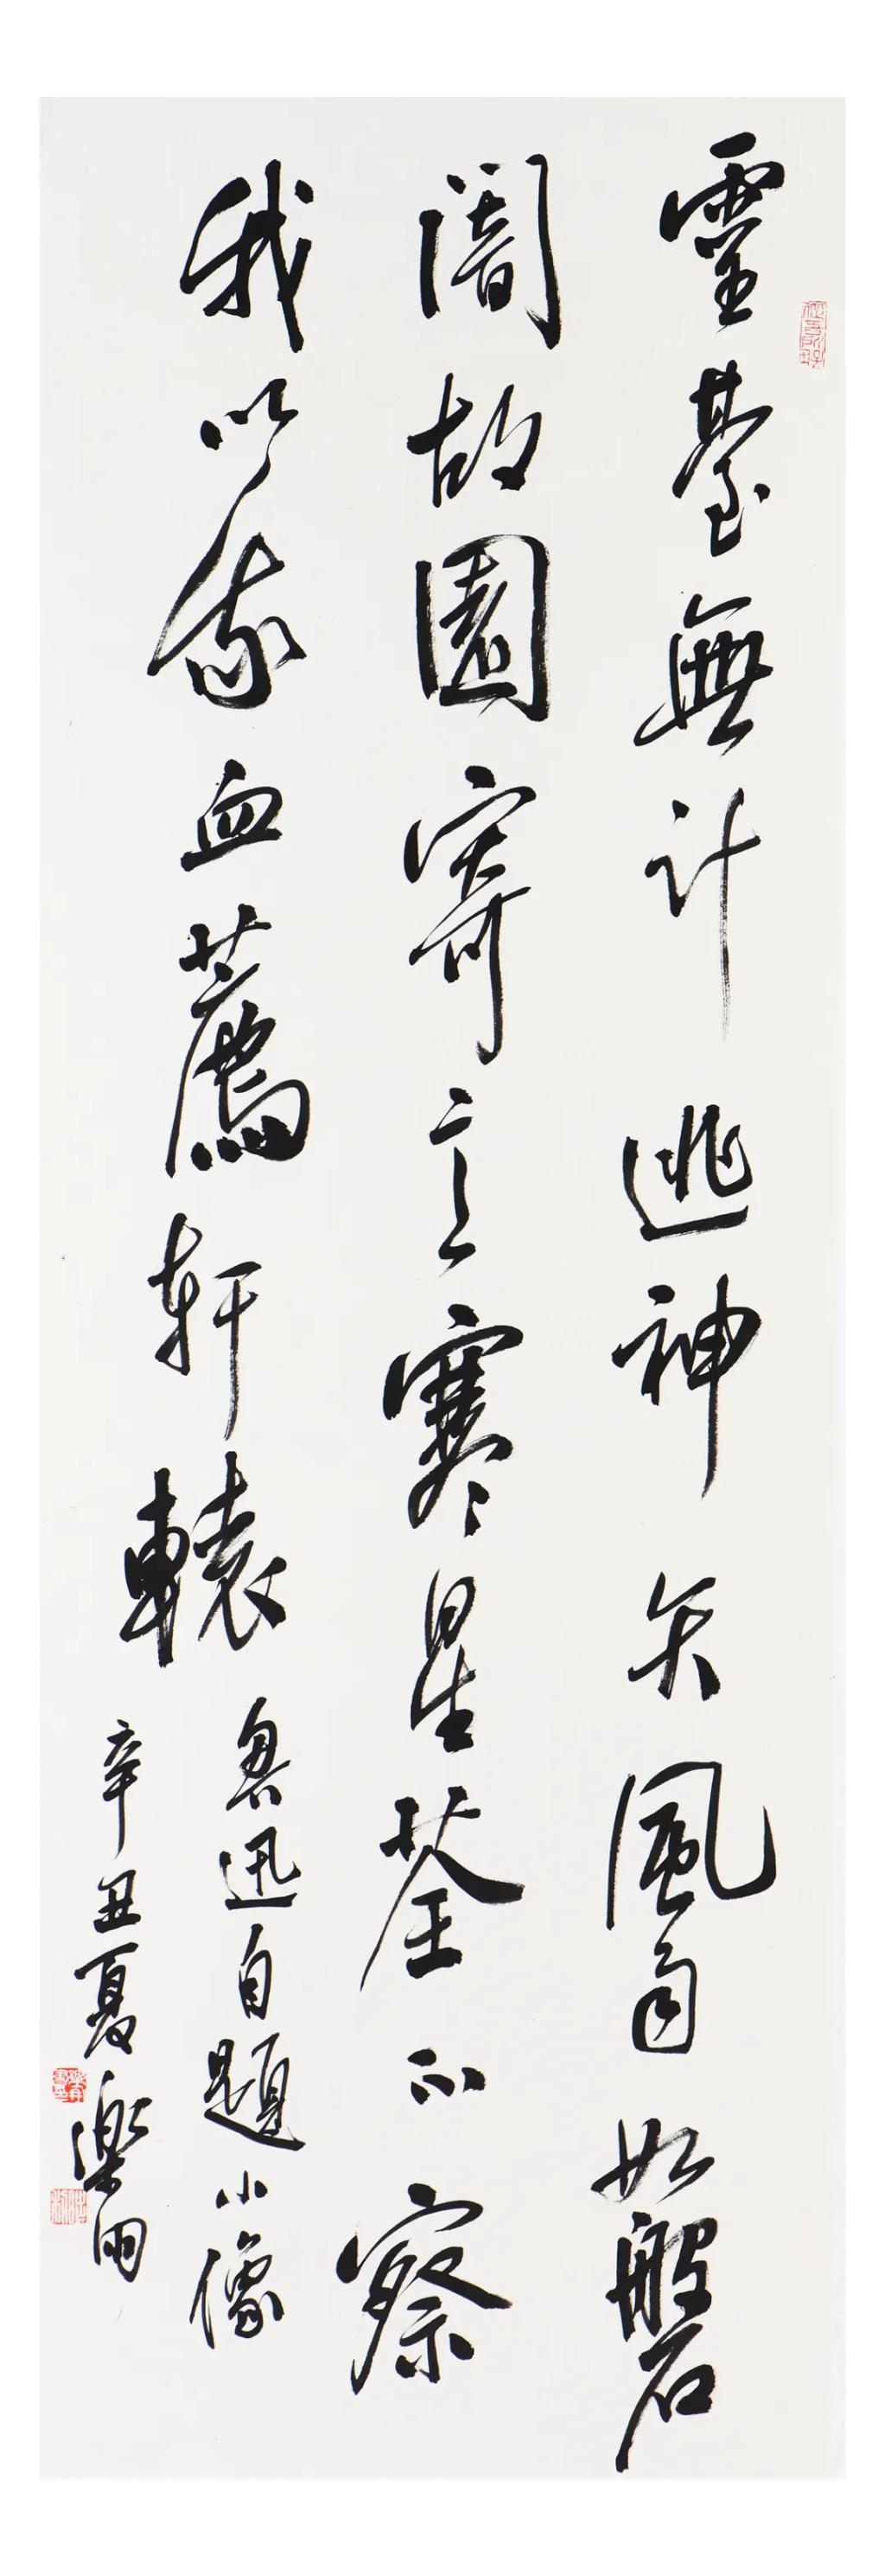 靈臺無計逃神矢風雨如磐
闇故園寄意寒星荃不察
我以我血薦軒轅
魯迅自題小像
辛丑夏樂